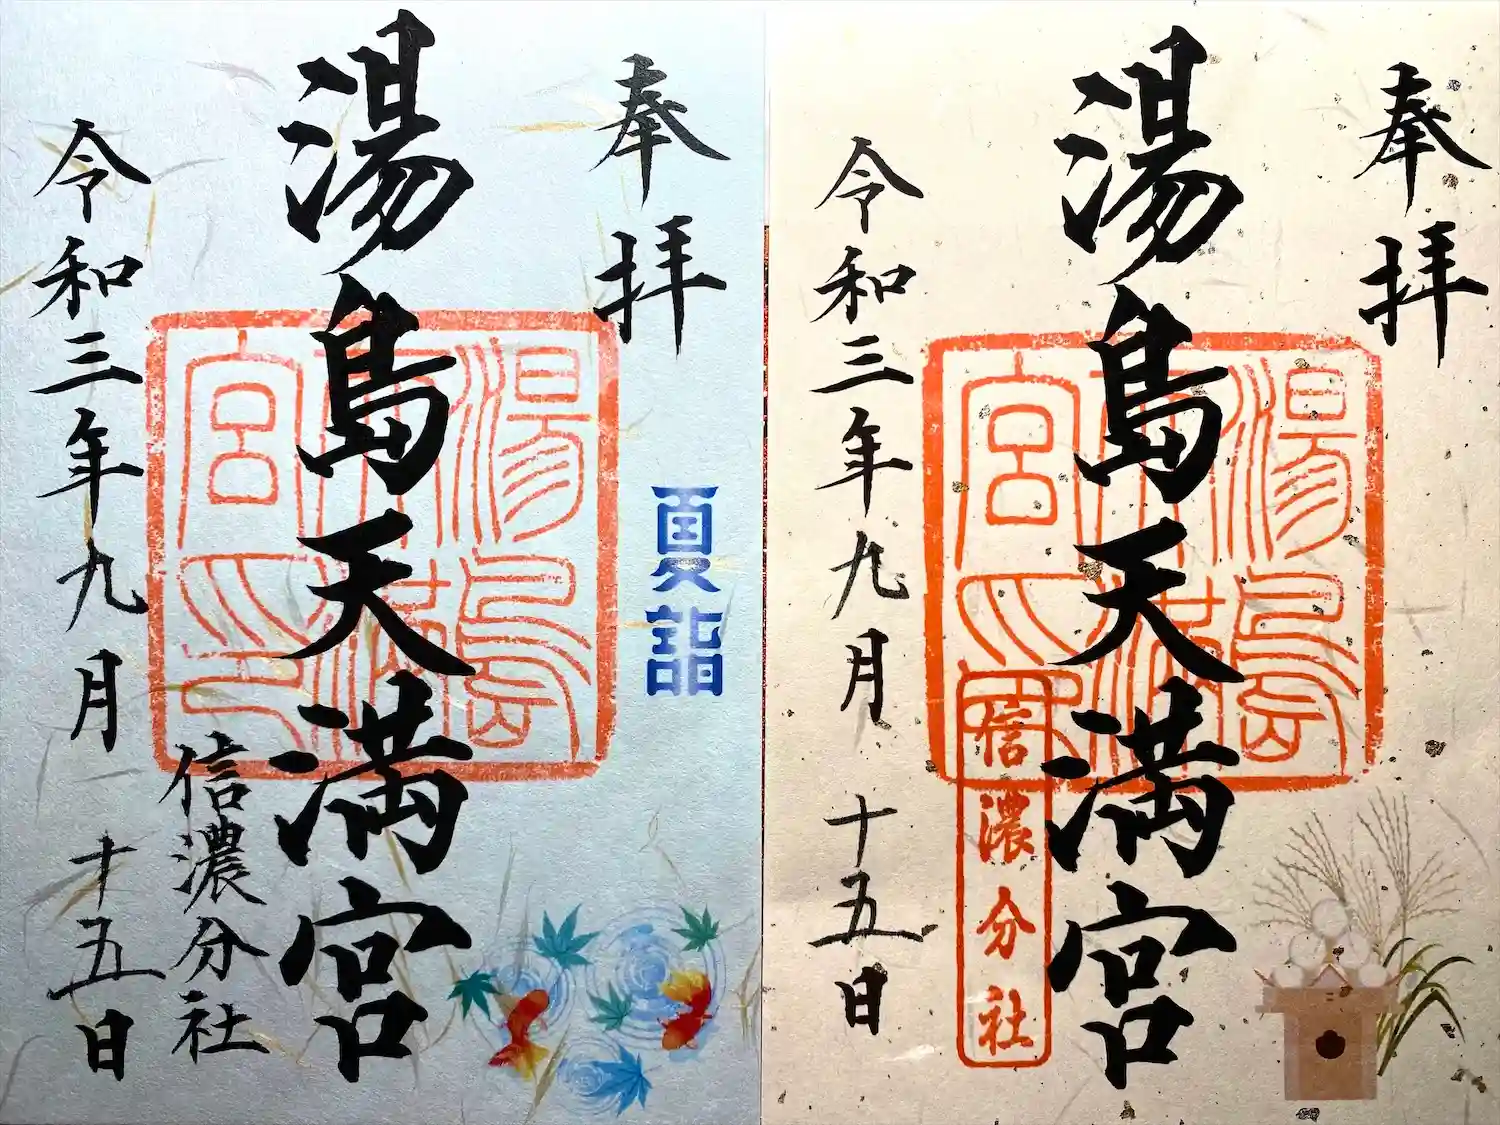 奉拝
夏詣
湯島天満宮
湯島天満宮印
信濃分社
令和三年九月十五日
奉拝
湯島天満宮
湯島天満宮印
信濃分社
令和三年九月十五日